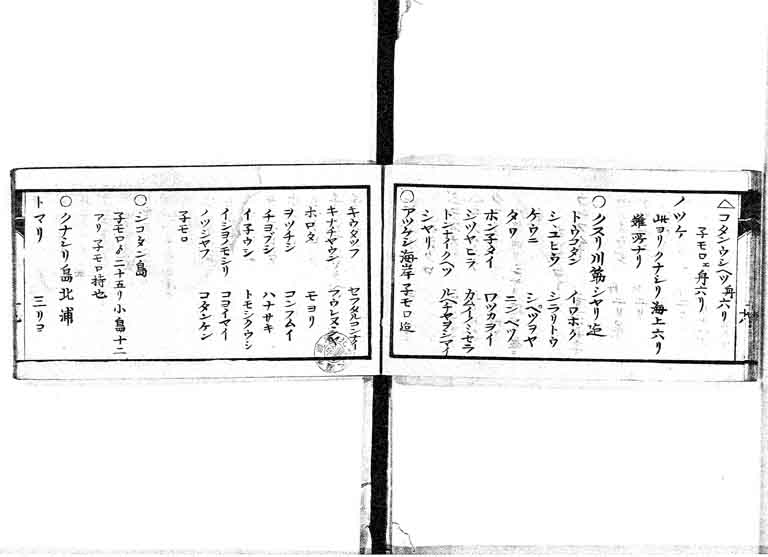 △コタンウシヘツ舟六リ
子モロエ舟六リ
ノツケ
此ヨリクナシリ海上六リ
難所ナリ
〇クスリ川筋シヤリ迄
トウコタン イワホク
シユヒウ シラリトウ
ケウニ シペツヲヤ
タワ ニシベツ
ホン子タイ ワツカライ
シツヤヒラ カムイノミセラ
トンナイクヘツ ルヘチヤヲシマイ
シヤリ
〇アツケシ海岸子モロ迄
キウタツフ セフタルコンナイ
キナチヤウシ
ホロタ モヨリ
ヲツチシ コンフムイ
チヨブシ ハナサキ
イ子ウシ トモシクウシ
イショノモシリ コヨイマイ
ノツシヤフ コタンケシ
子モロ
〇シコタン島
子モロより二十五リ小島十二
アリ子モロ持也
〇クナシリ島北浦
トマリ 三リヨ